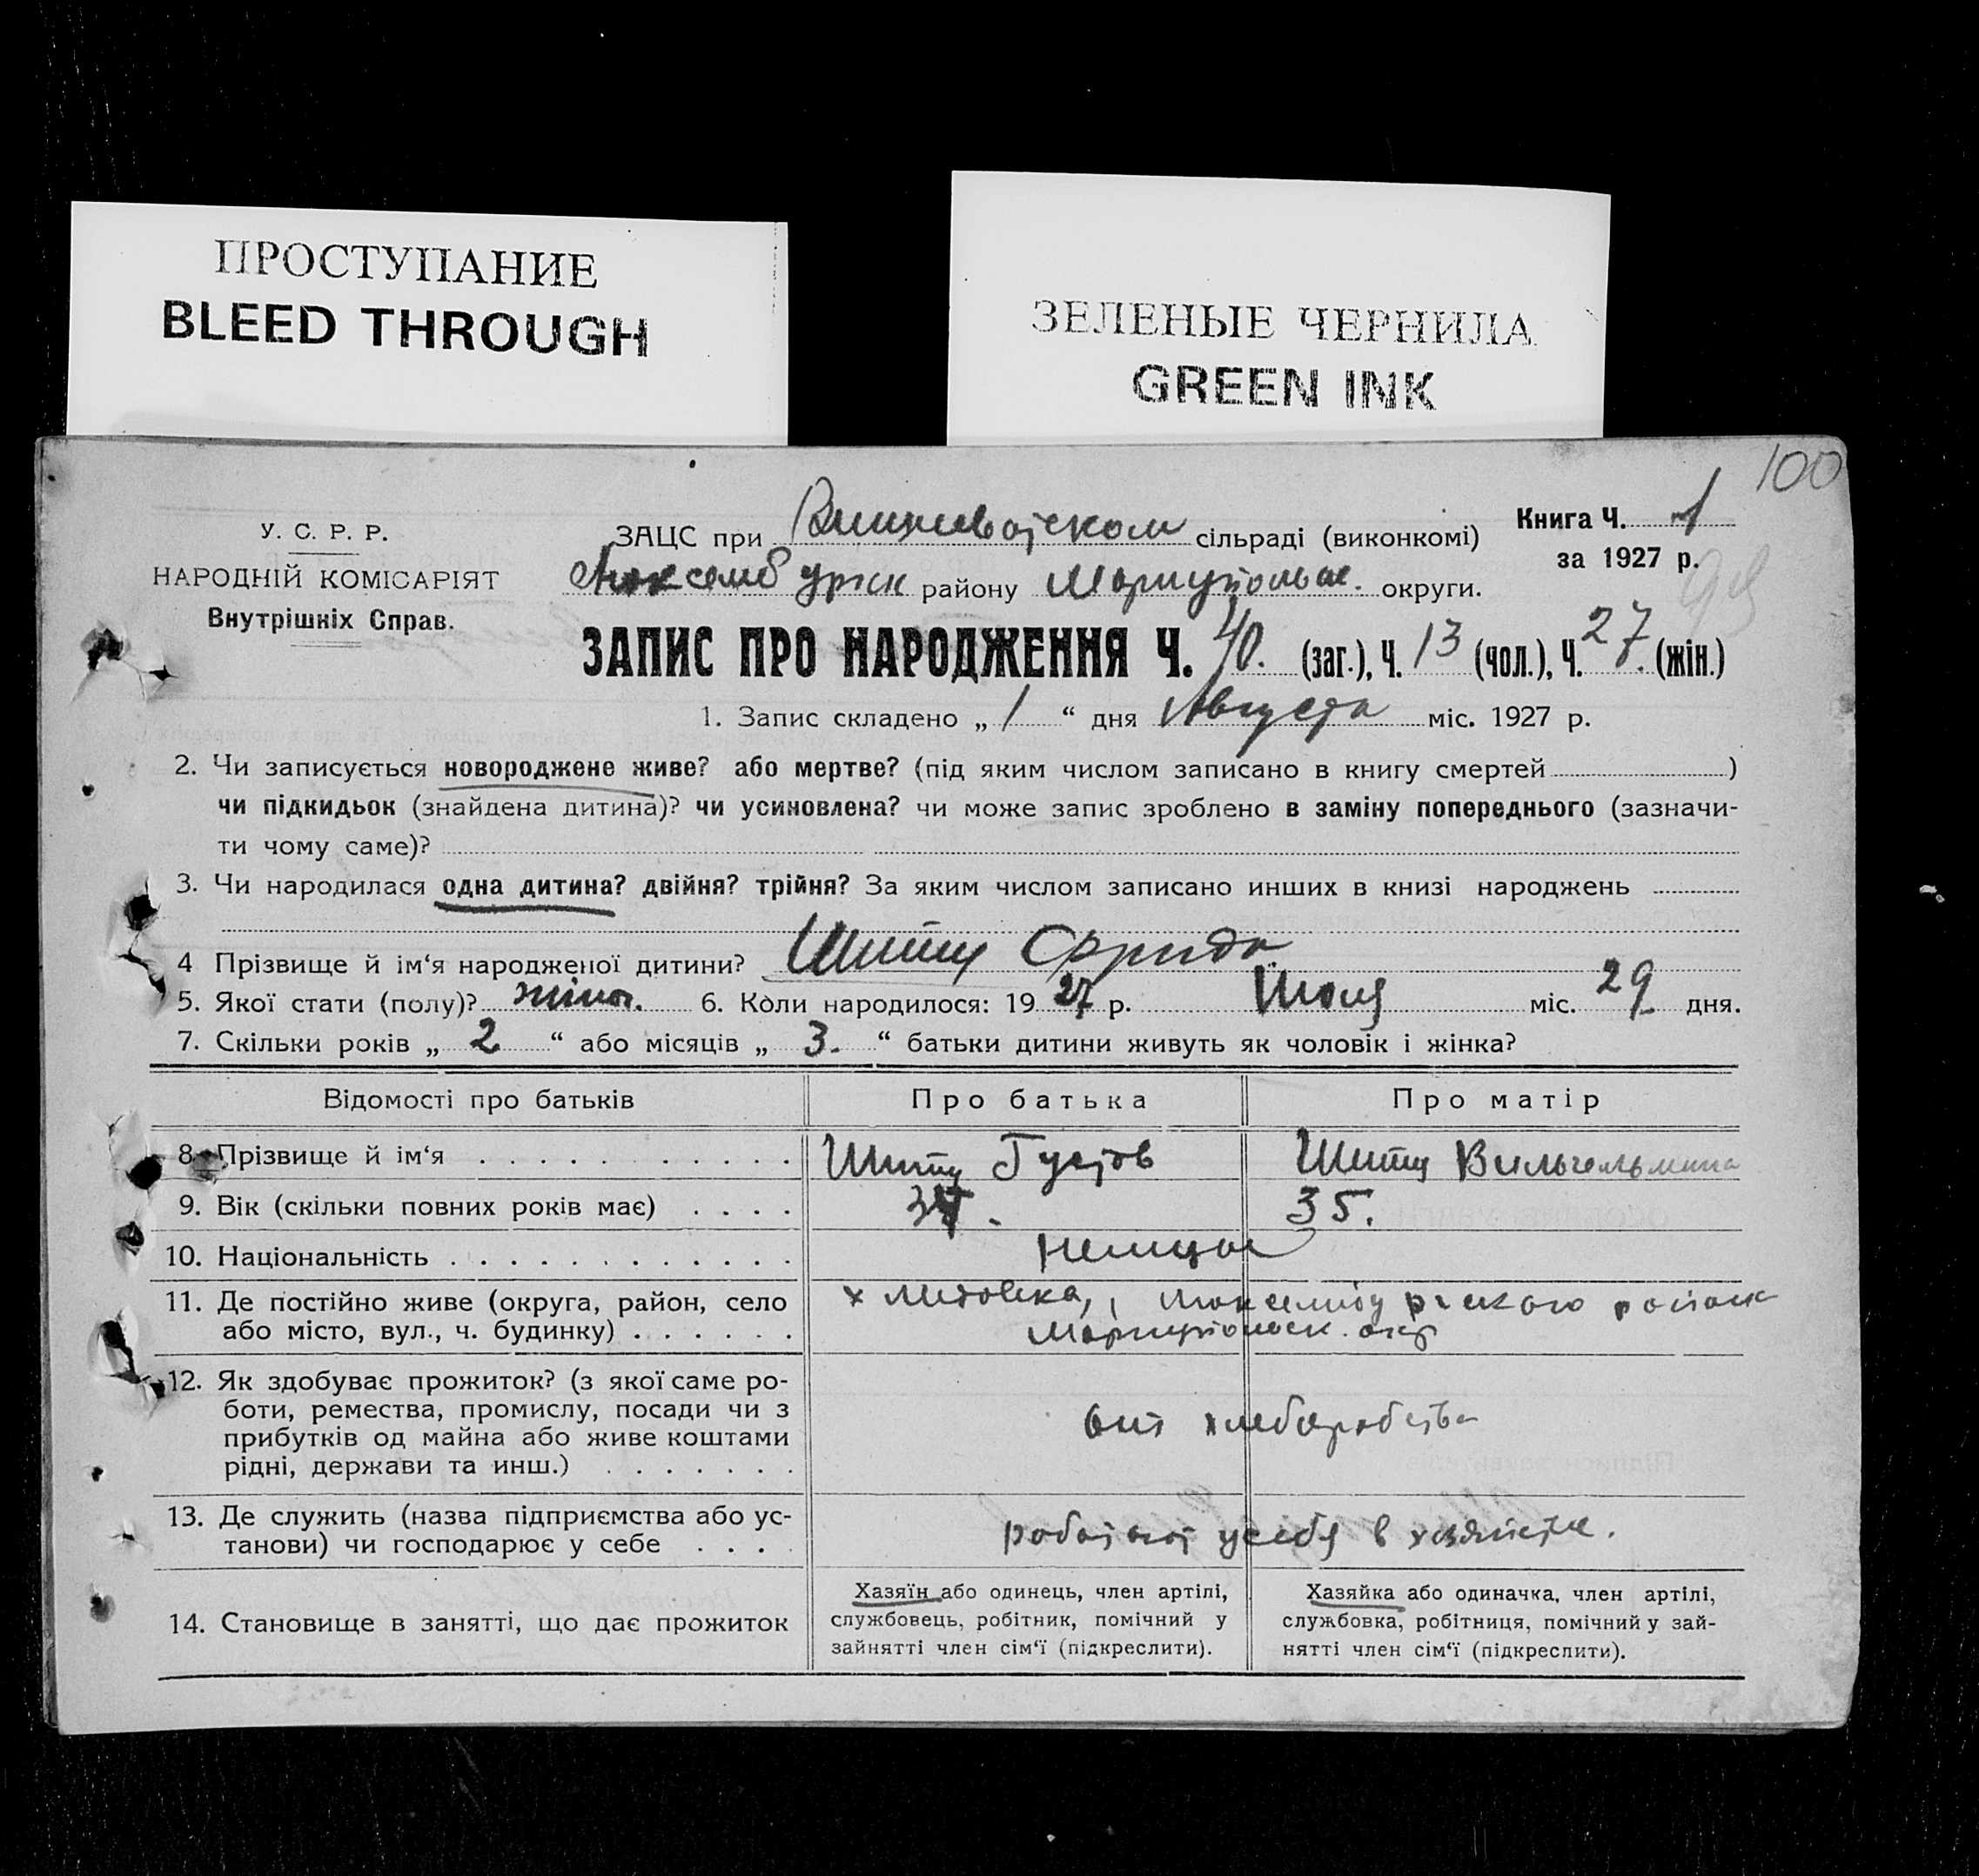 ПРОСТУПАНИЕ
BLEED THROUGH
ЗЕЛЕНЫЕ ЧЕРНИЛА
GREEN INK
100
У. С. Р. Р.
НАРОДНІЙ КОМІСАРІЯТ
Внутрішніх Справ.
ЗАЦС при сільраді (виконкомі)
Люксембургск району Мариупольск. округи.
Книга Ч. 1
за 1927 р.
99
ЗАПИС ПРО НАРОДЖЕННЯ Ч. 40. (заг.), Ч. 13 (чол.), Ч. 27. (жін.)
1. Запис складено „ 1 “ дня Августа міс. 1927 р.
2. Чи записується новороджене живе? або мертве? (під яким числом записано в книгу смертей )
чи підкидьок (знайдена дитина)? чи усиновлена? чи може запис зроблено в заміну попереднього (зазначи-
ти чому саме)?
3. Чи народилася одна дитина? двійня? трійня? За яким числом записано инших в книзі народжень
4 Прізвище й ім‘я народженої дитини? Шитц Фрида
5. Якої стати (полу)? жіноч. 6. Коли народилося: 19 27 р. Июля міс. 29 дня.
7. Скільки років „ 2 “ або місяців „ 3. “ батьки дитини живуть як чоловік і жінка?
Відомості про батьків Про батька Про матір
8. Прізвище й ім‘я Шитц Густав Шитц Вильгельмина
9. Вік (скільки повних років має) 35.
10. Національність немцы
11. Де постійно живе (округа, район, село
або місто, вул., ч. будинку)
х Люксембургского района
Мариупольск. окр
12. Як здобуває прожиток? (з якої саме ро-
боти, ремества, промислу, посади чи з
прибутків од майна або живе коштами
рідні, держави та инш.)
от хлеборобства
13. Де служить (назва підприємства або ус-
танови) чи господарює у себе
работают у себя в хозяйстве.
14. Становище в занятті, що дає прожиток
Хазяїн або одинець, член артілі,
службовець, робітник, помічний у
зайнятті член сім‘ї (підкреслити).
Хазяйка або одиначка, член артілі,
службовка, робітниця, помічний у зай-
нятті член сім‘ї (підкреслити).